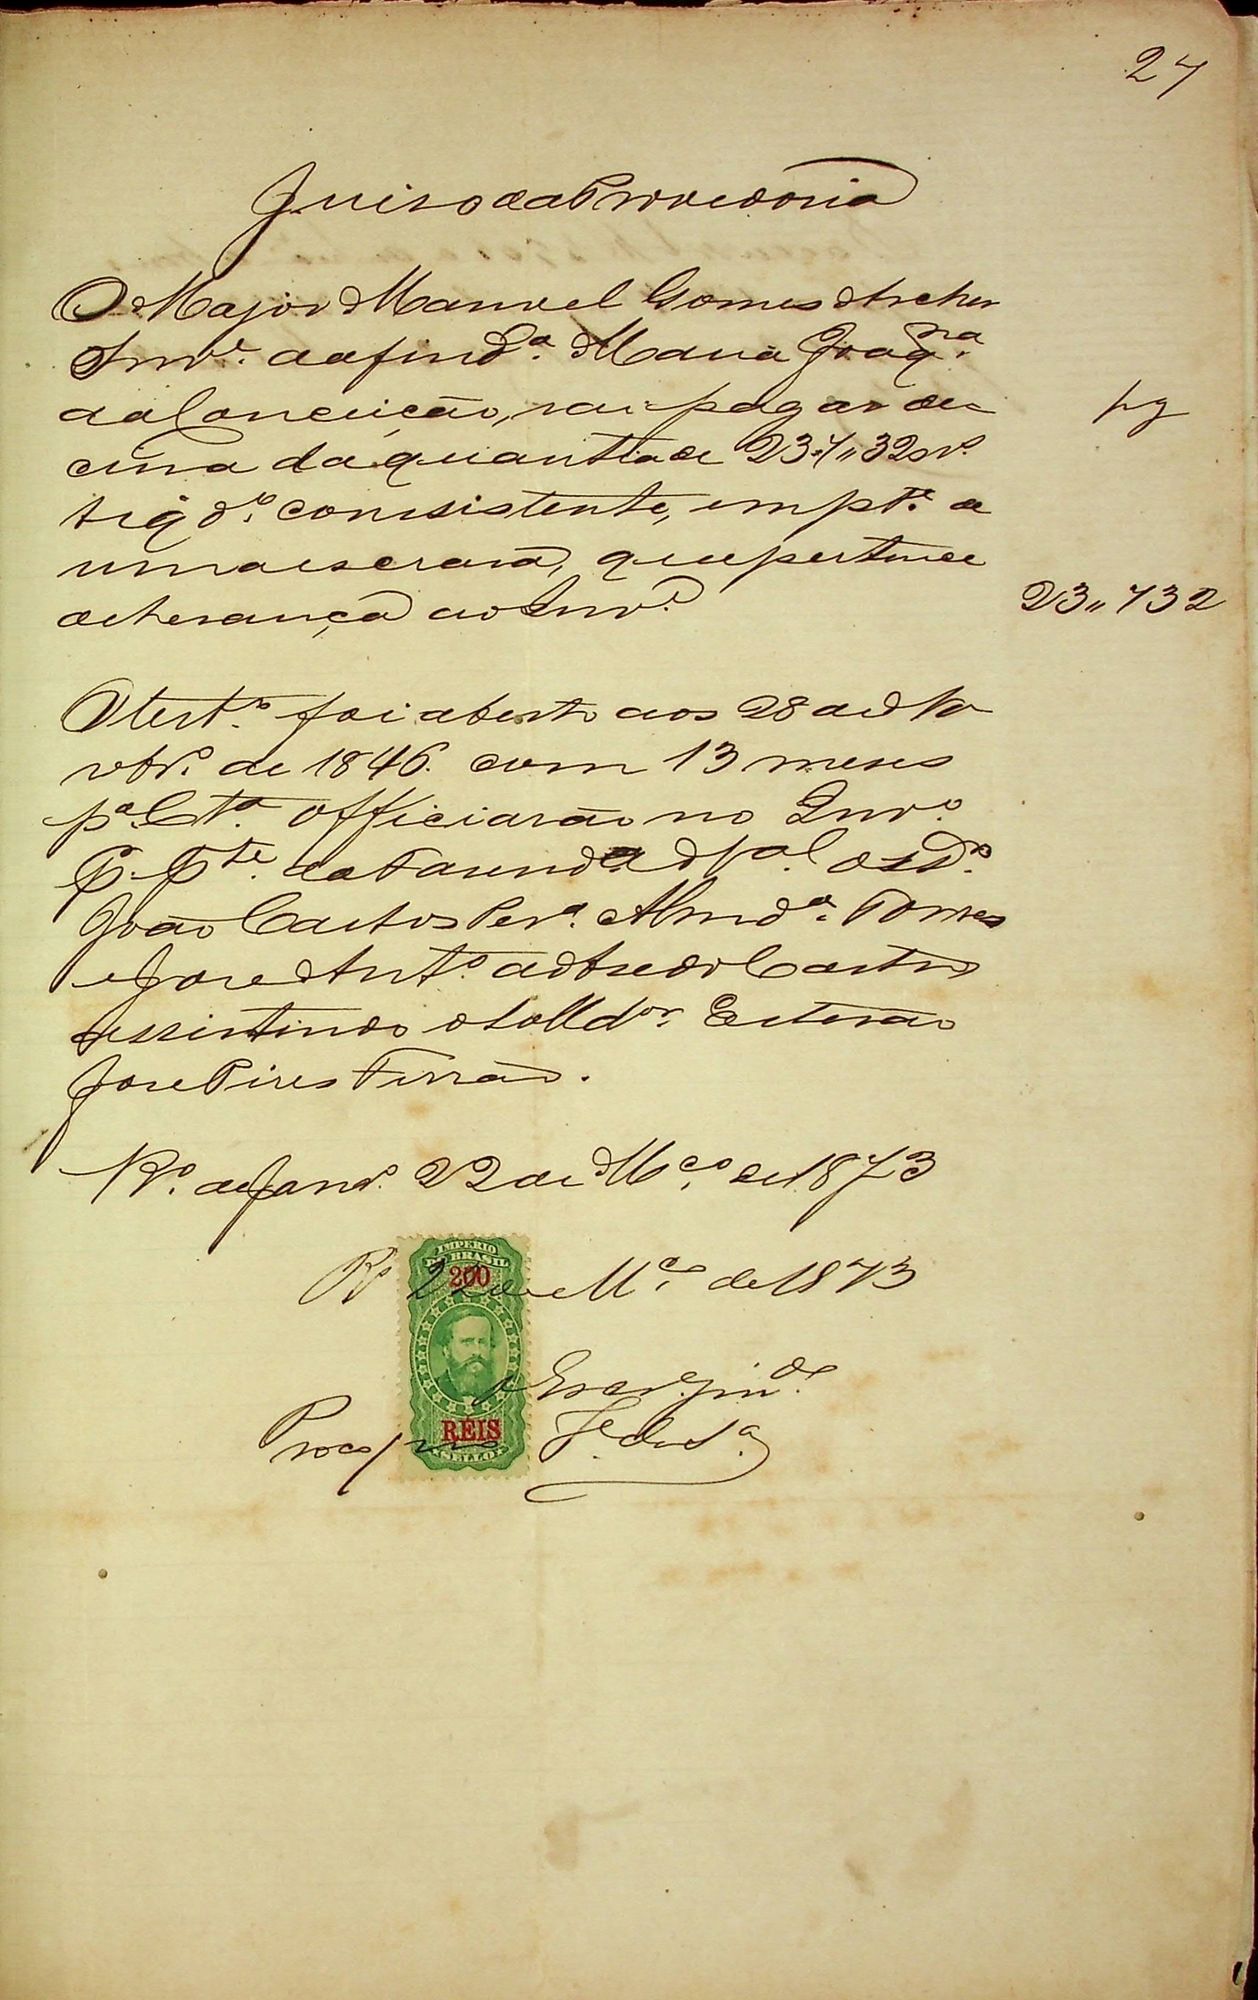 27
Juiso da Provedoria
O Major Manoel Gomes Archer
Invᵉ. da find.ª Maria Joaq.ⁿᵃ
da Conceição, vai pagar de
pg
cima da quantia de 237,,320 r.ˢ
liqd.º consistente, em pt.ᵉ de
uma escrava, que pertence
de herança ao Invᵉ.
23,,732
O test.º foi aberto aos 28 de No
vbr.º de 1846. com 13 meses
p.ª Ct.ª officiarão no Inv.º
P. Pᵗᵉ. da Fazend.ª N.al os D.ʳˢ
João Carlos Per.ª Almd.ª Torres
e Jose Ant.º de Castro
assistindo o Solld.ºʳ Estevão
Jose Pires Ferrão.
R.º de Janr.º 22 de M.ᶜᵒ de 1873
R.º 22 de M.ᶜᵒ de 1873
IMPERIO
DO BRASIL
200
RÉIS
SELLO
Procopio